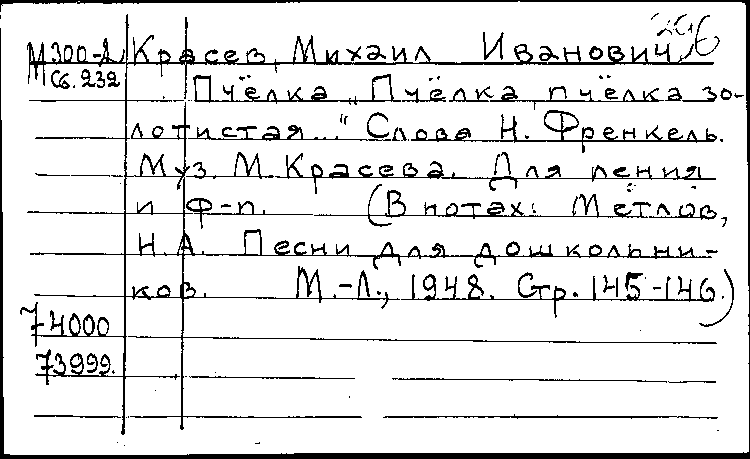 296
М300-2 Красев, Михаил Иванович.
Сб. 232
Пчёлка „Пчёлка, пчёлка зо-
лотистая..." Слова Н. Френкель.
Муз. М. Красева. Для пения
и ф-п. (В нотах: Метлов,
Н.А. Песни для дошкольни-
ков. М.-Л., 1948. Стр. 145-146.)
74000
73999.